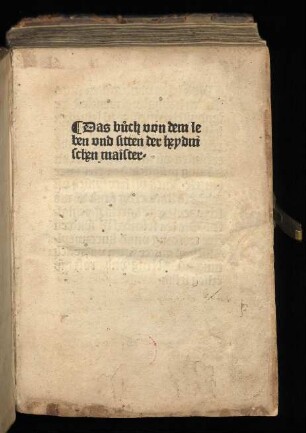 ¶Das bůch von dem le
ben vnd sitten der heydni
schen maister.